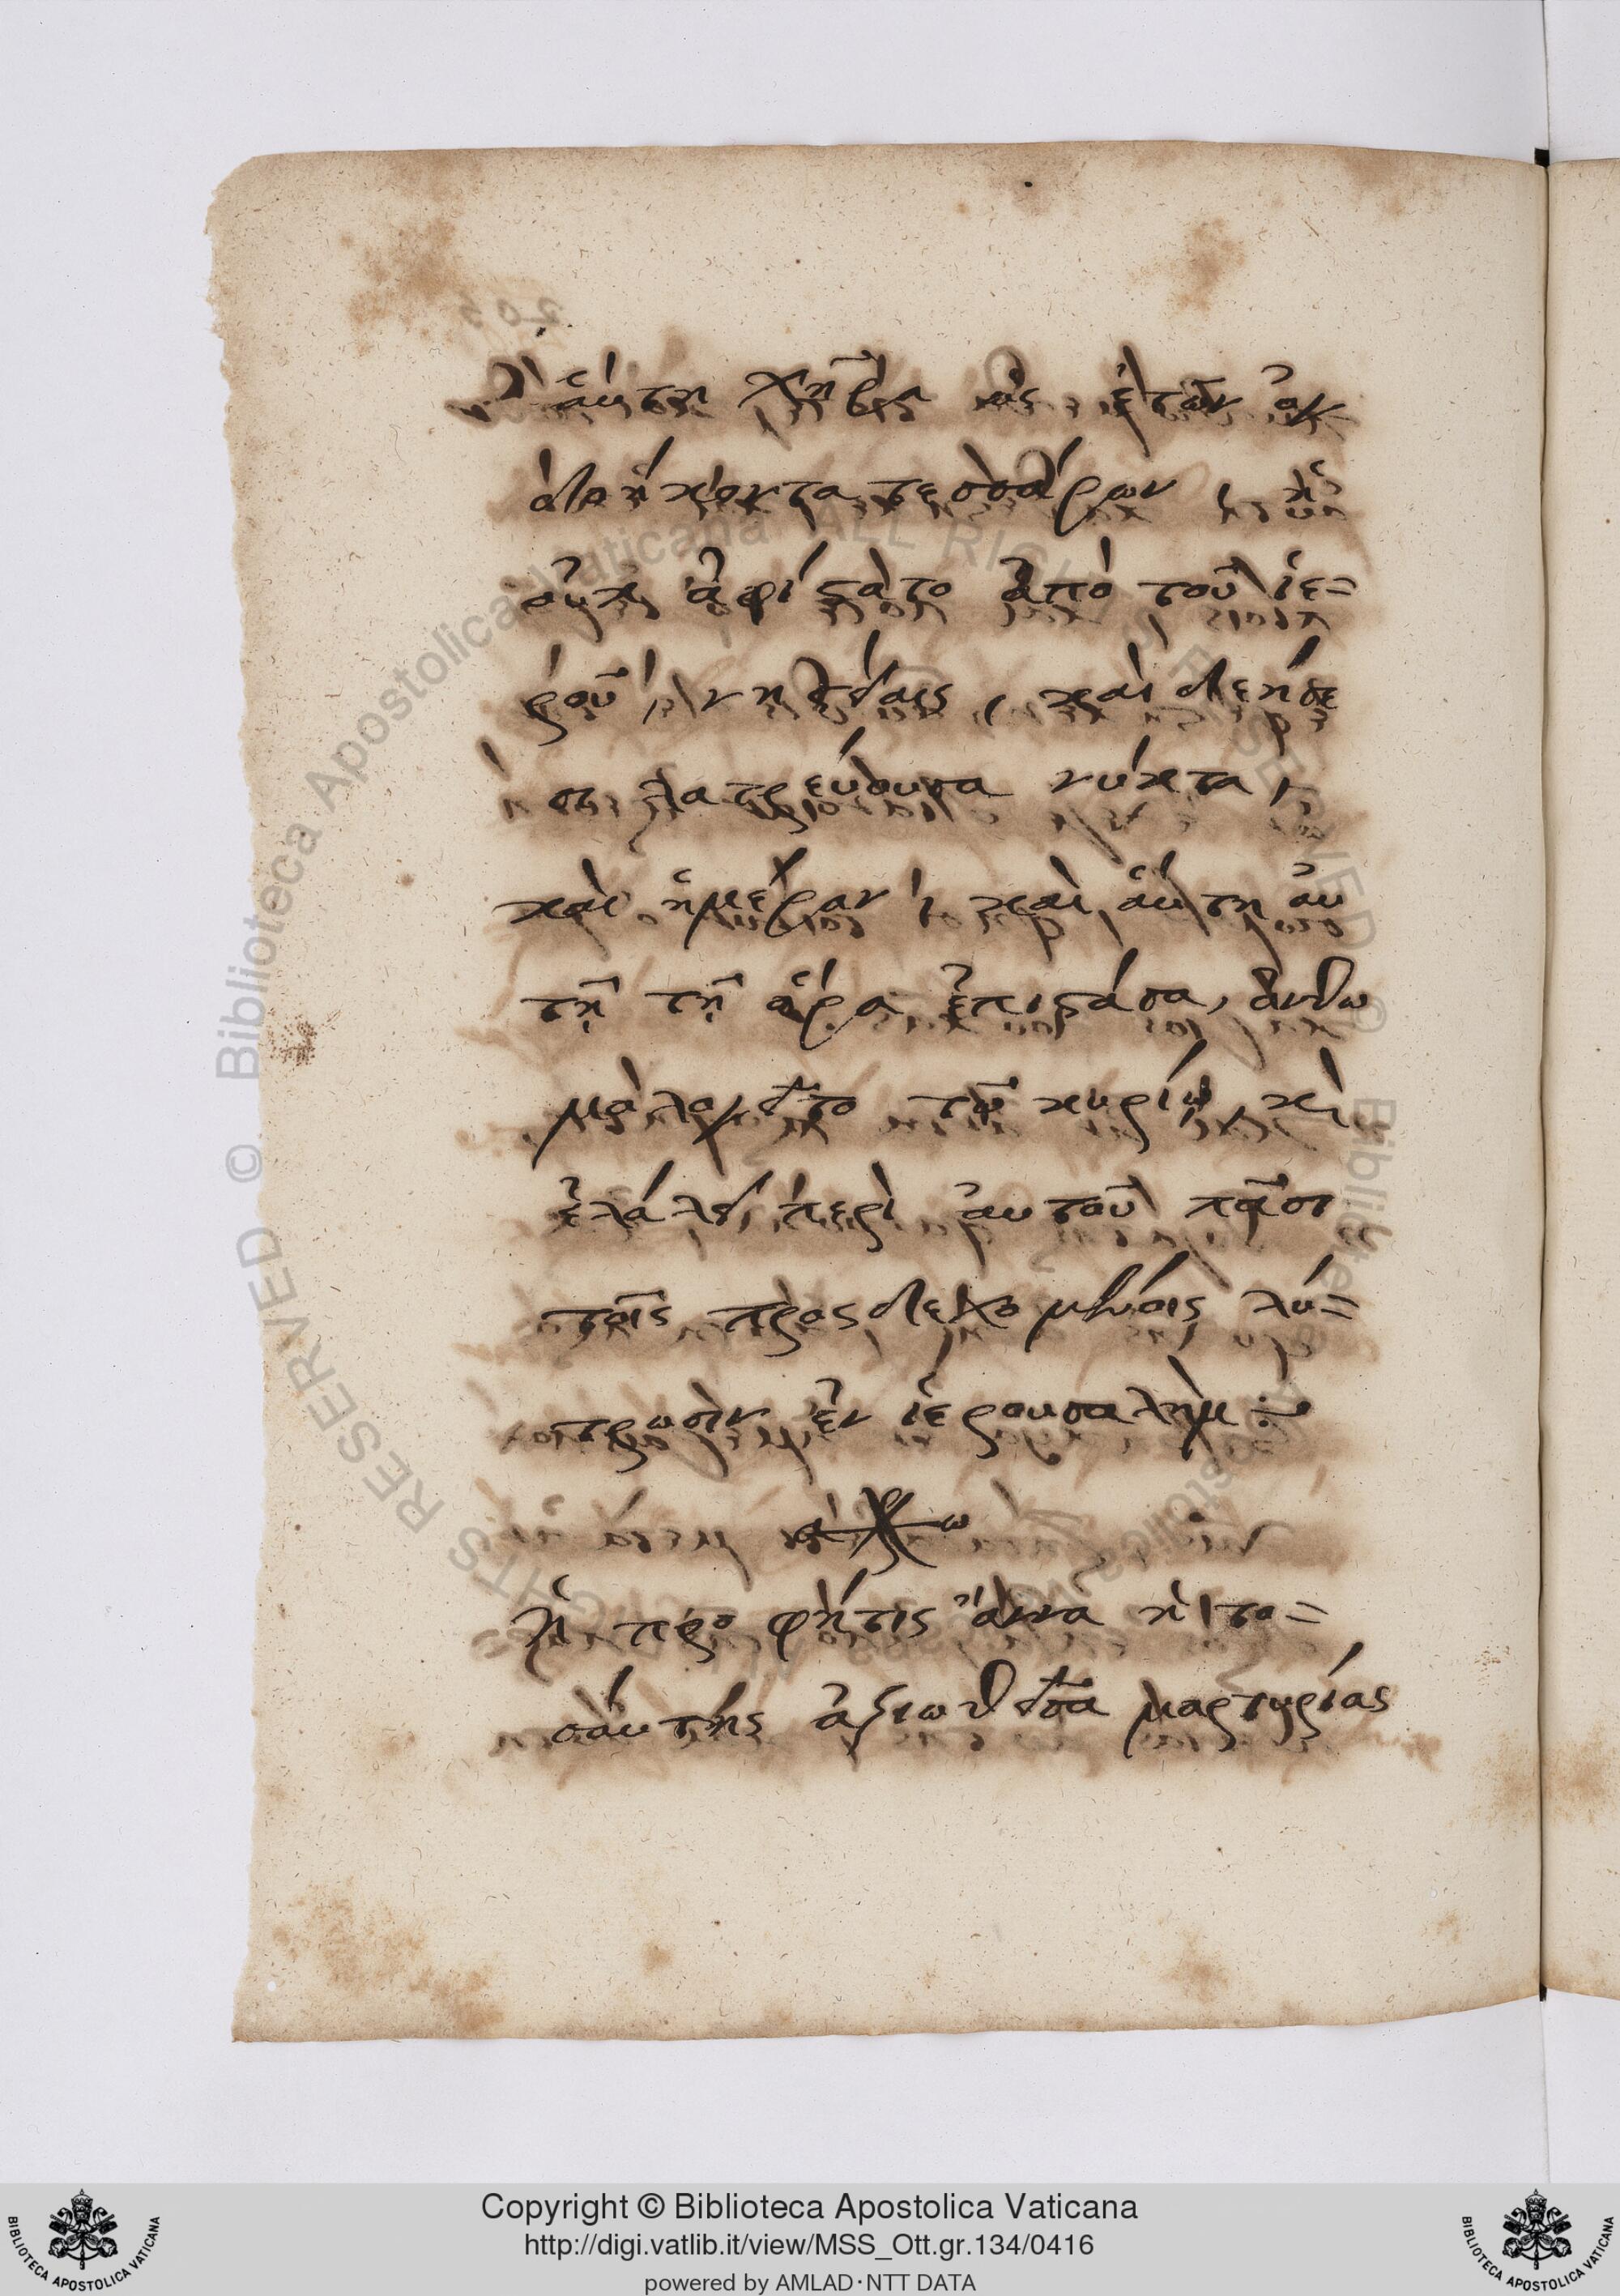 αὕτη χῆρα ὡς ἐτῶν ὀγ
δοήκοντα τεσσάρων, ἣ
οὐκ ἀφίστατο ἀπὸ τοῦ ἱε=
ροῦ, νηστείαις, καὶ δεήσε
σι λατρεύουσα νύκτα,
καὶ ἡμέραν, καὶ αὕτη αὐ
τῇ τῇ ὥρα ἐπιστάσα, ἀνθω
μολογεῖτο τῷ κυρίῳ, κὶ
ἐλάλει περὶ αὐτοῦ πᾶσι
τοῖς προσδεχομένοις λύ=
τρωσιν ἐν ἱερουσαλήμ :~
ἡ προφήτις ἄννα ἡ το=
σαύτης ἀξιωθεῖσα μαρτυρίας
© Biblioteca Apostolica Vaticana ALL RIGHTS RESERVED © Biblioteca Apostolica Vaticana ALL RIGHTS RESERVED
Copyright © Biblioteca Apostolica Vaticana
http://digi.vatlib.it/view/MSS_Ott.gr.134/0416
powered by AMLAD·NTT DATA
BIBLIOTECA APOSTOLICA VATICANA
BIBLIOTECA APOSTOLICA VATICANA